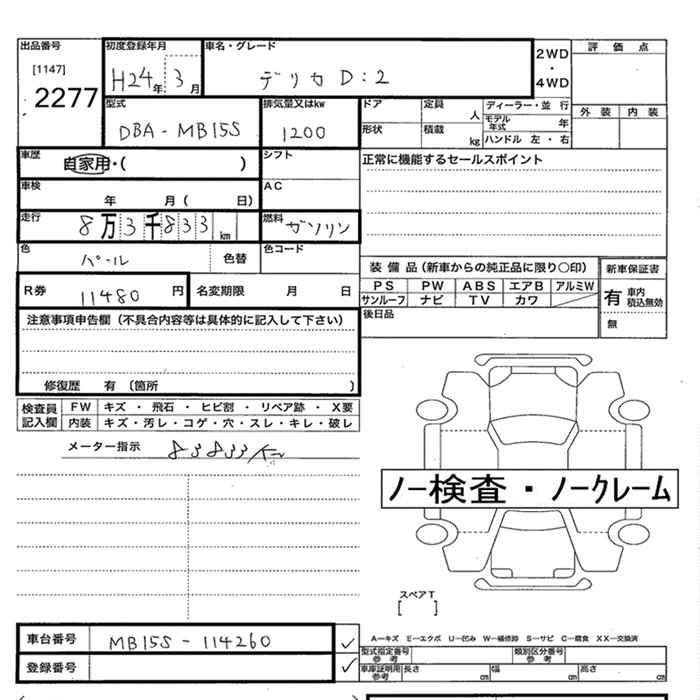 出品番号 初度登録年月 車名・グレード 2WD・4WD 評価点
[1147] 2277 H24年3月 デリカD:2 外装 内装
型式 排気量又はkw ドア 定員 人 ディーラー・並行
DBA-MB15S 1200 形状 積載 kg モデル年式 年
ハンドル 左・右
車歴 自家用・( ) シフト 正常に機能するセールスポイント
車検 年 月( 日) AC
走行 8万3千833km 燃料 ガソリン
色 パール 色替 色コード
装備品(新車からの純正品に限り○印) 新車保証書
R券 11480円 名変期限 月 日
PS PW ABS エアB アルミW 有 車内積込無効
サンルーフ ナビ TV カワ
注意事項申告欄(不具合内容等は具体的に記入して下さい) 後日品 無
修復歴 有 〔箇所 〕
検査員記入欄 FW キズ・飛石・ヒビ割・リペア跡・X要
内装 キズ・汚レ・コゲ・穴・スレ・キレ・破レ
メーター指示 83833km
ノー検査・ノークレーム
スペアT
[ ]
車台番号 MB15S-114260 ✓
A―キズ E―エクボ U―凹み W―補修跡 S―サビ C―腐食 XX―交換済
型式指定番号 参考 類別区分番号 参考
登録番号 ✓ 車庫証明用 参考 長さ cm 幅 cm 高さ cm